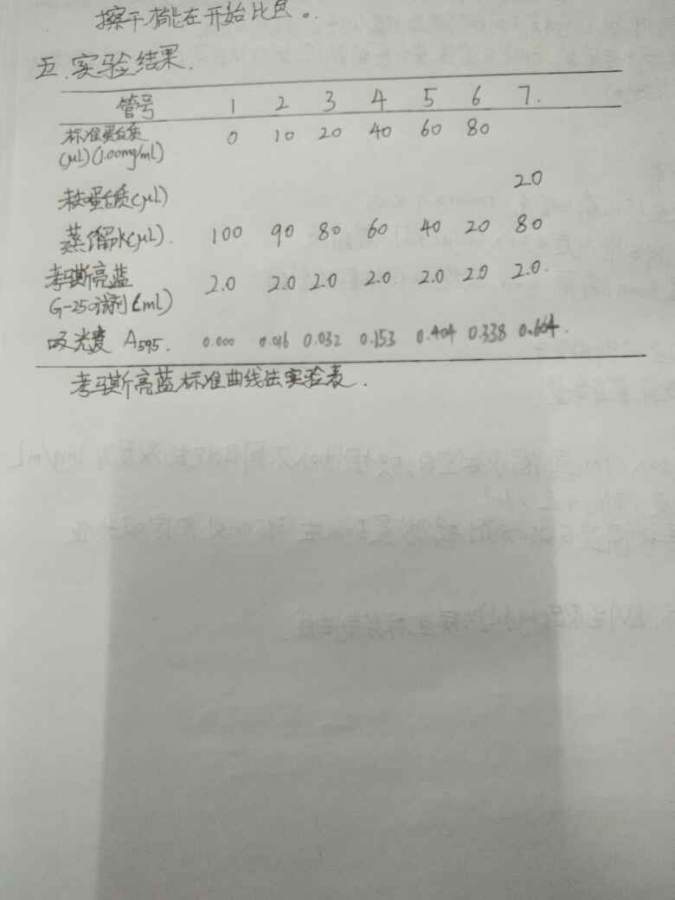 擦干才能在开始比色。
五.实验结果.
管号 1 2 3 4 5 6 7.
标准蛋白质 0 10 20 40 60 80
(μL)(1.00mg/mL)
蛋白质(μL) 20
蒸馏水(μL). 100 90 80 60 40 20 80
考马斯亮蓝 2.0 2.0 2.0 2.0 2.0 2.0 2.0.
G-250试剂(mL)
吸光度 A595. 0.000 0.016 0.032 0.153 0.404 0.338 0.664.
考马斯亮蓝标准曲线法实验表.